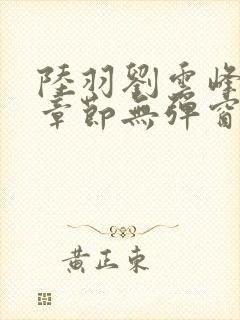 陸羽劉雲峰
章節無彈窗
黃正東